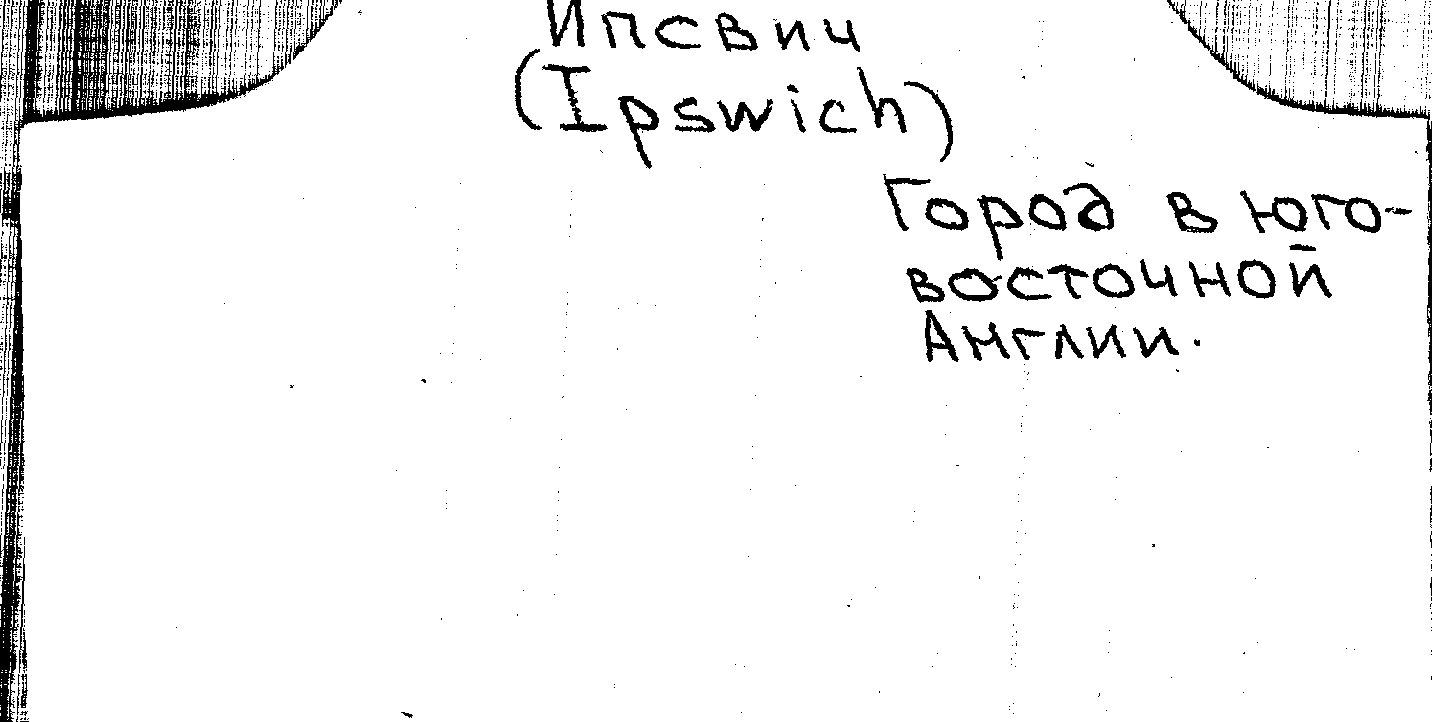 Ипсвич
(Ipswich)
Город в юго-
восточной
Англии.